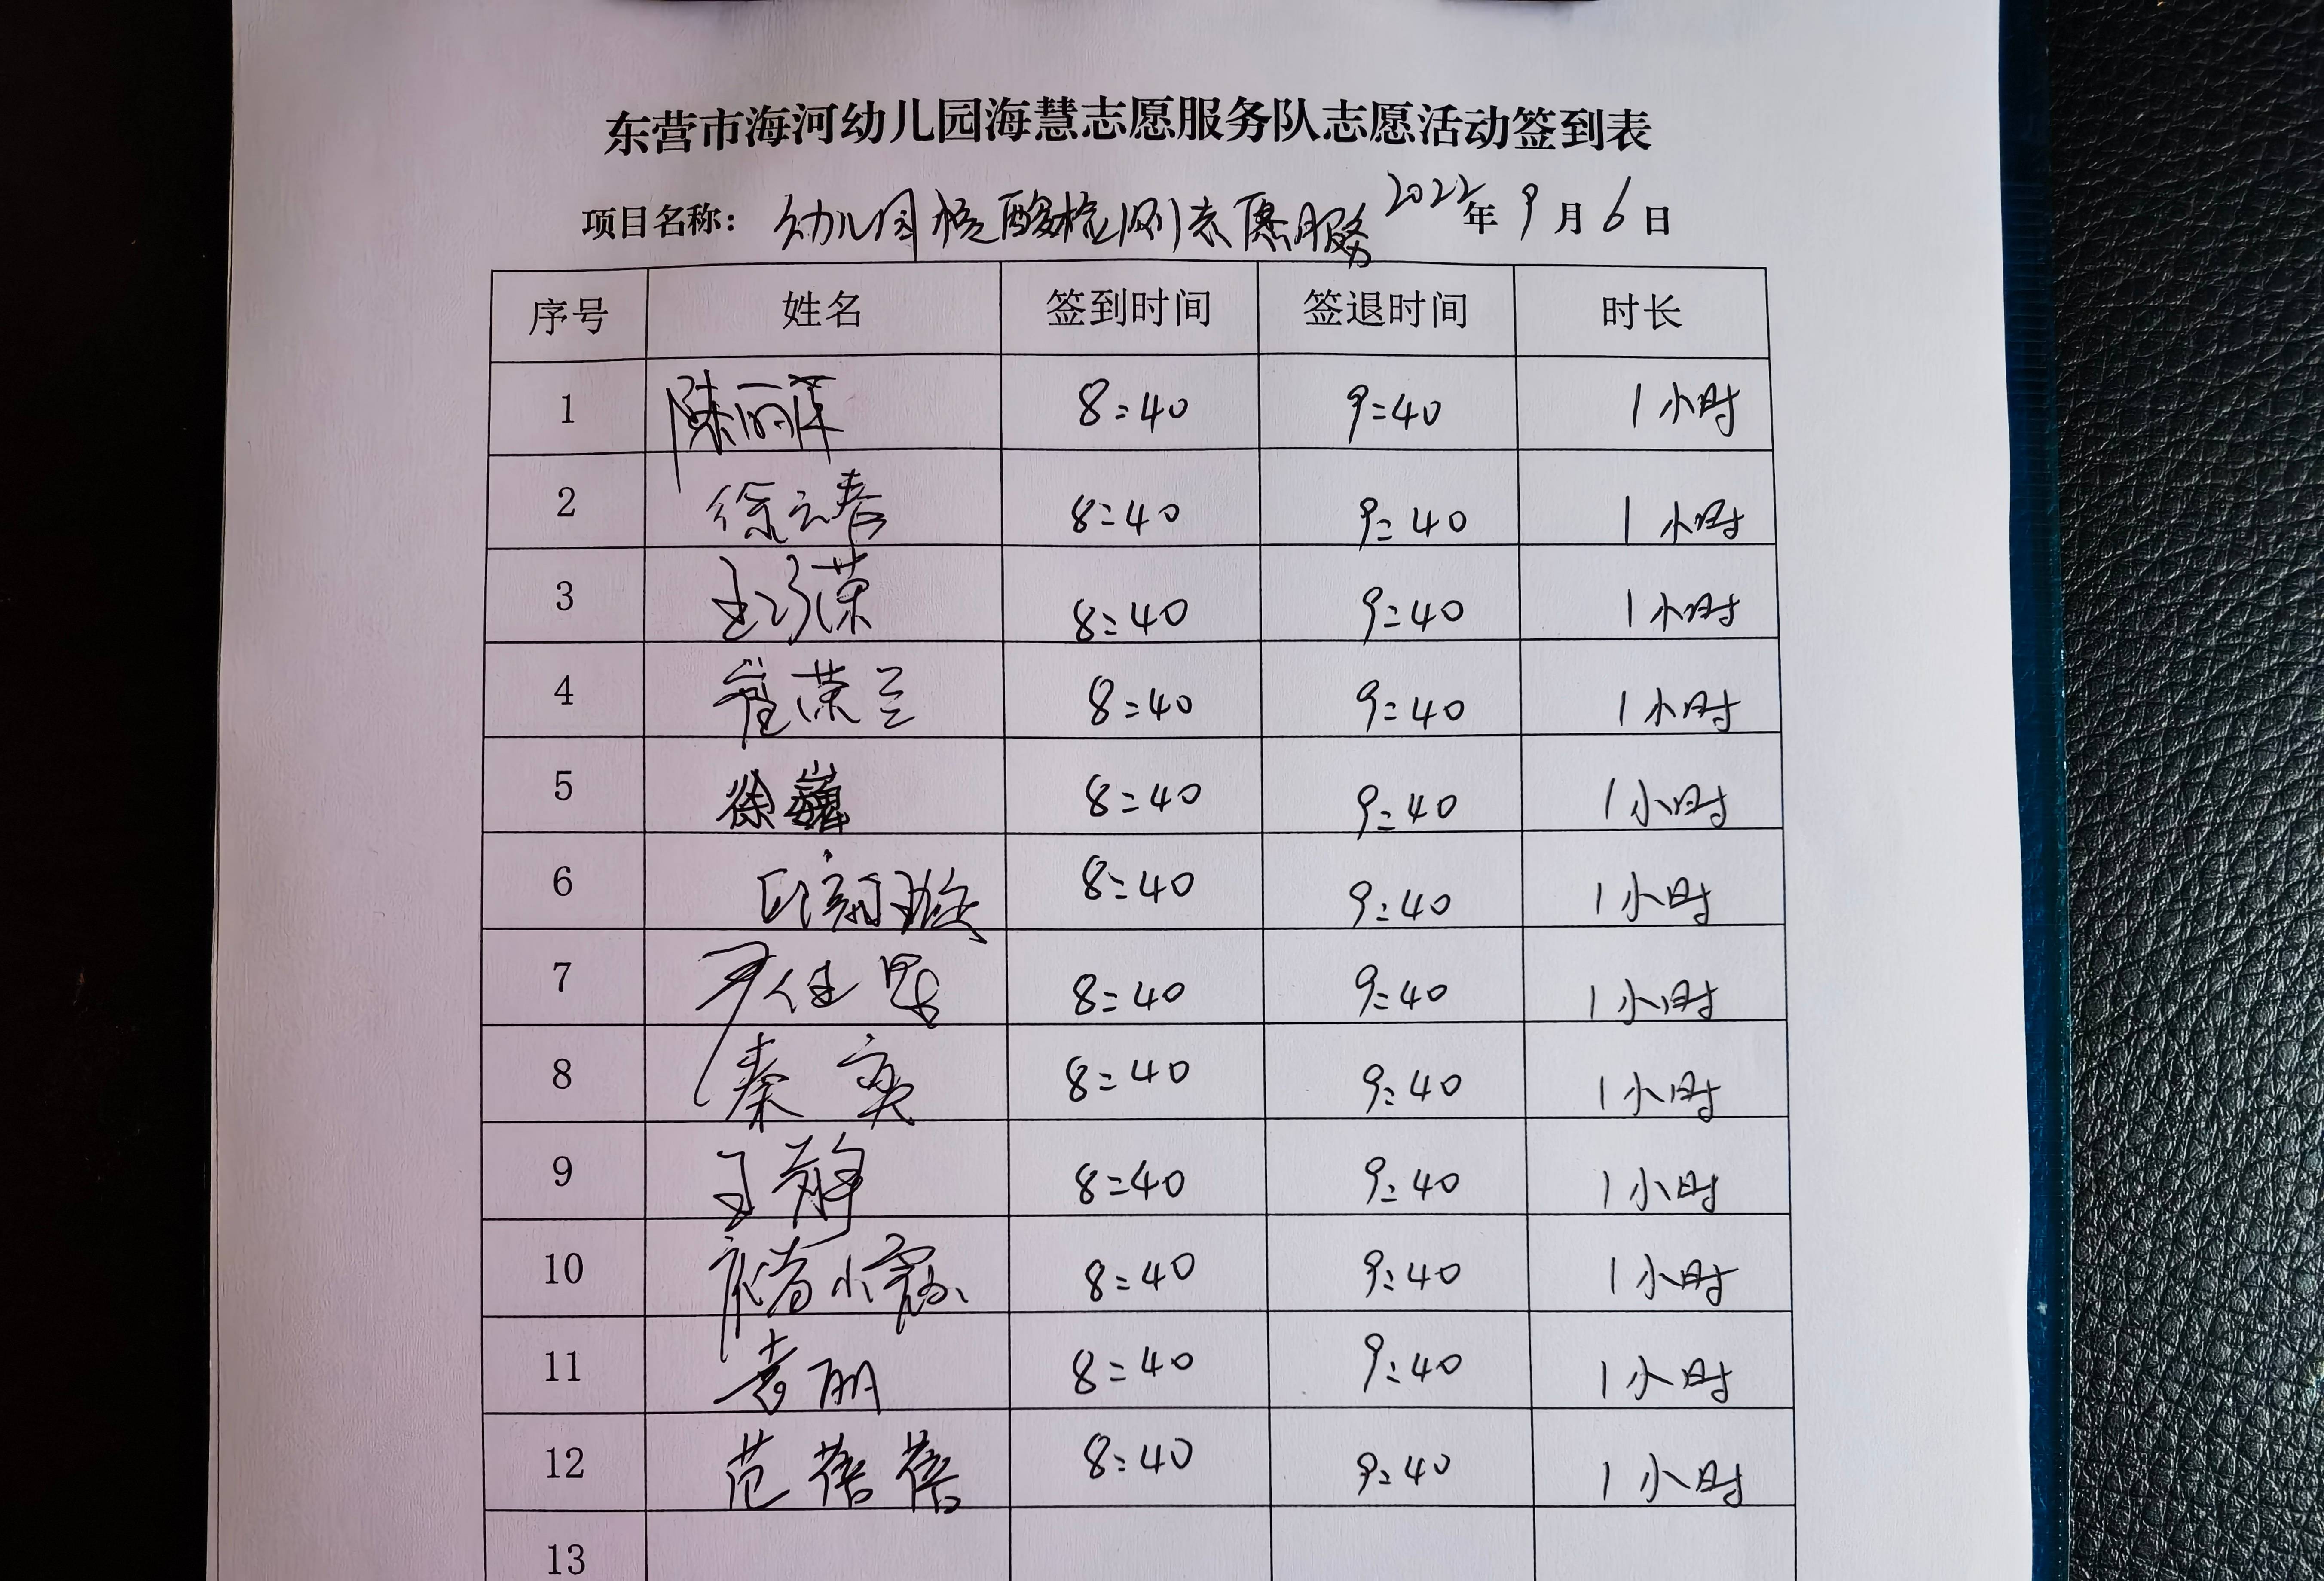 东营市海河幼儿园海慧志愿服务队志愿活动签到表
项目名称： 幼儿园核酸检测志愿服务 2022年 9 月 6 日
序号 姓名 签到时间 签退时间 时长
1 陈丽萍 8:40 9:40 1小时
2 徐云春 8:40 9:40 1小时
3 8:40 9:40 1小时
4 崔荣兰 8:40 9:40 1小时
5 徐巍 8:40 9:40 1小时
6 8:40 9:40 1小时
7 8:40 9:40 1小时
8 秦 8:40 9:40 1小时
9 王静 8:40 9:40 1小时
10 8:40 9:40 1小时
11 8:40 9:40 1小时
12 范蓓蓓 8:40 9:40 1小时
13